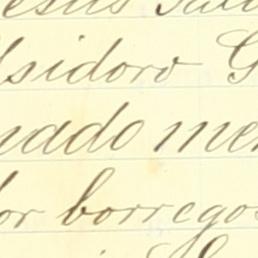 esus
Isidoro G
nado men
or borregos